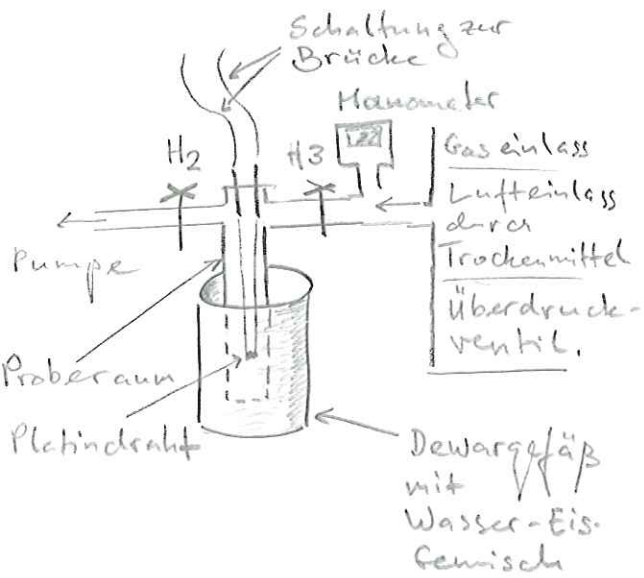 Schaltung zur
Brücke
Manometer
H2
H3
Gaseinlass
Lufteinlass
durch
Trockenmittel
Überdruck-
ventil.
Pumpe
Proberaum
Platindraht
Dewargefäß
mit
Wasser-Eis-
Gemisch